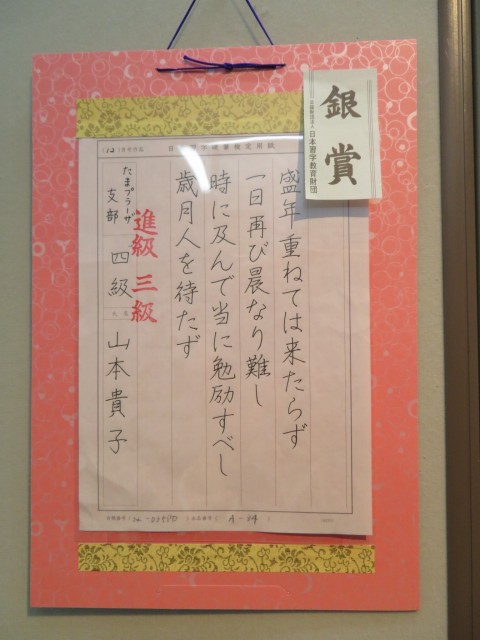 銀賞
公益財団法人 日本習字教育財団
(12)月号作品
盛年重ねては来たらず
一日再び晨なり難し
時に及んで当に勉励すべし
歳月人を待たず
進級 三級
たまプラーザ
支部
四級
氏名
山本貴子